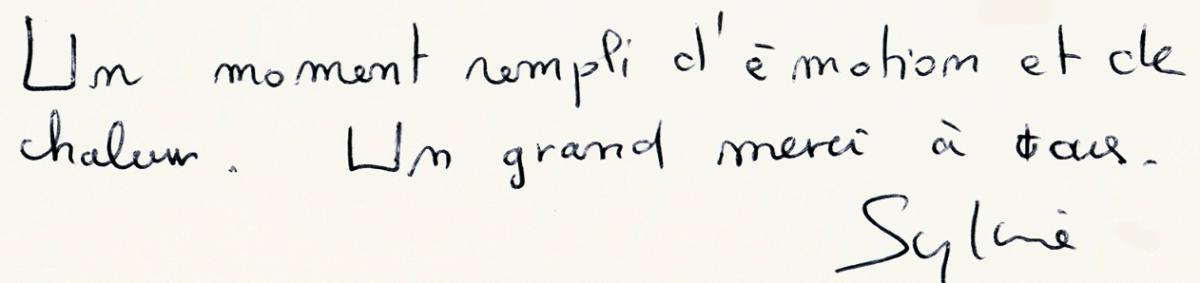 Un moment rempli d'émotion et de
chaleur. Un grand merci à tous.
Sylvie